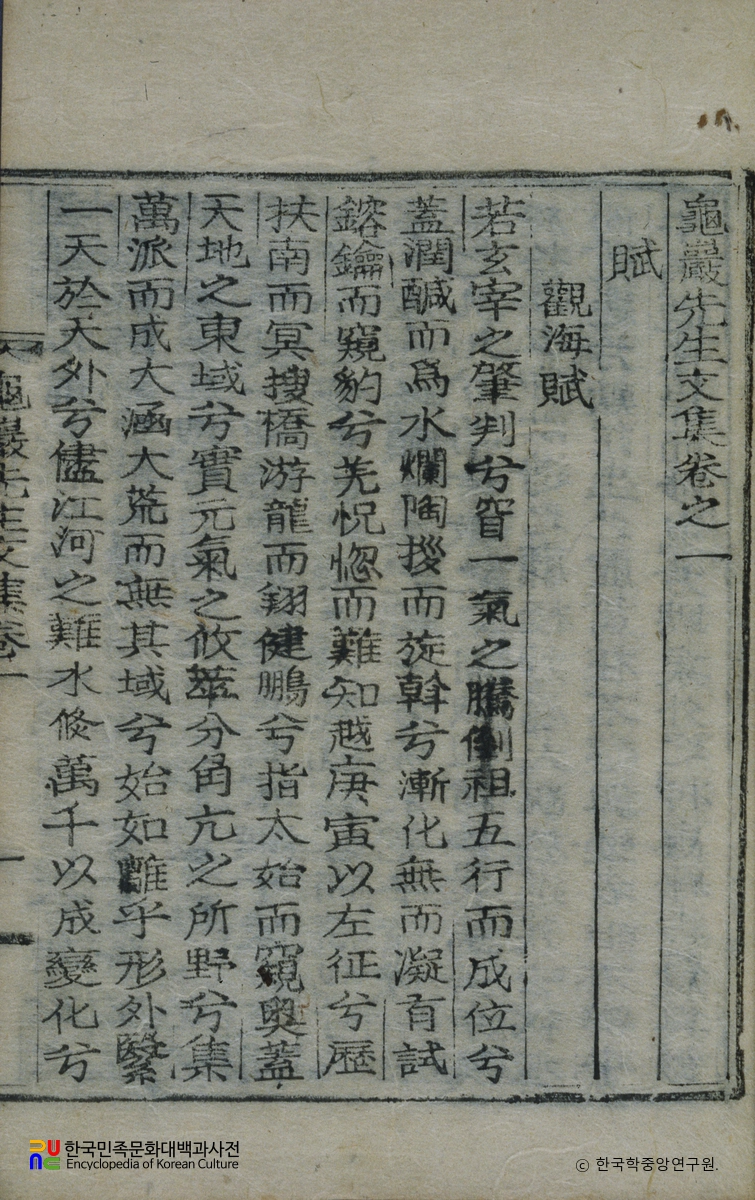 龜巖先生文集卷之一
賦
觀海賦
若玄宰之肇判兮窅一氣之騰倒祖五行而成位兮
蓋潤醎而爲水爛陶挼而旋斡兮漸化無而凝有試
鎔鑰而窺豹兮羌怳惚而難知越庚寅以左征兮歷
扶南而冥搜橋游龍而翔健鵬兮指太始而窺奧蓋
天地之東域兮實元氣之攸萃分角亢之所野兮集
萬派而成大涵大荒而無其域兮始如離乎形外繄
一天於天外兮儘江河之難水倏萬千以成變化兮
龜巖先生文集卷一
一
한국민족문화대백과사전
Encyclopedia of Korean Culture
© 한국학중앙연구원.